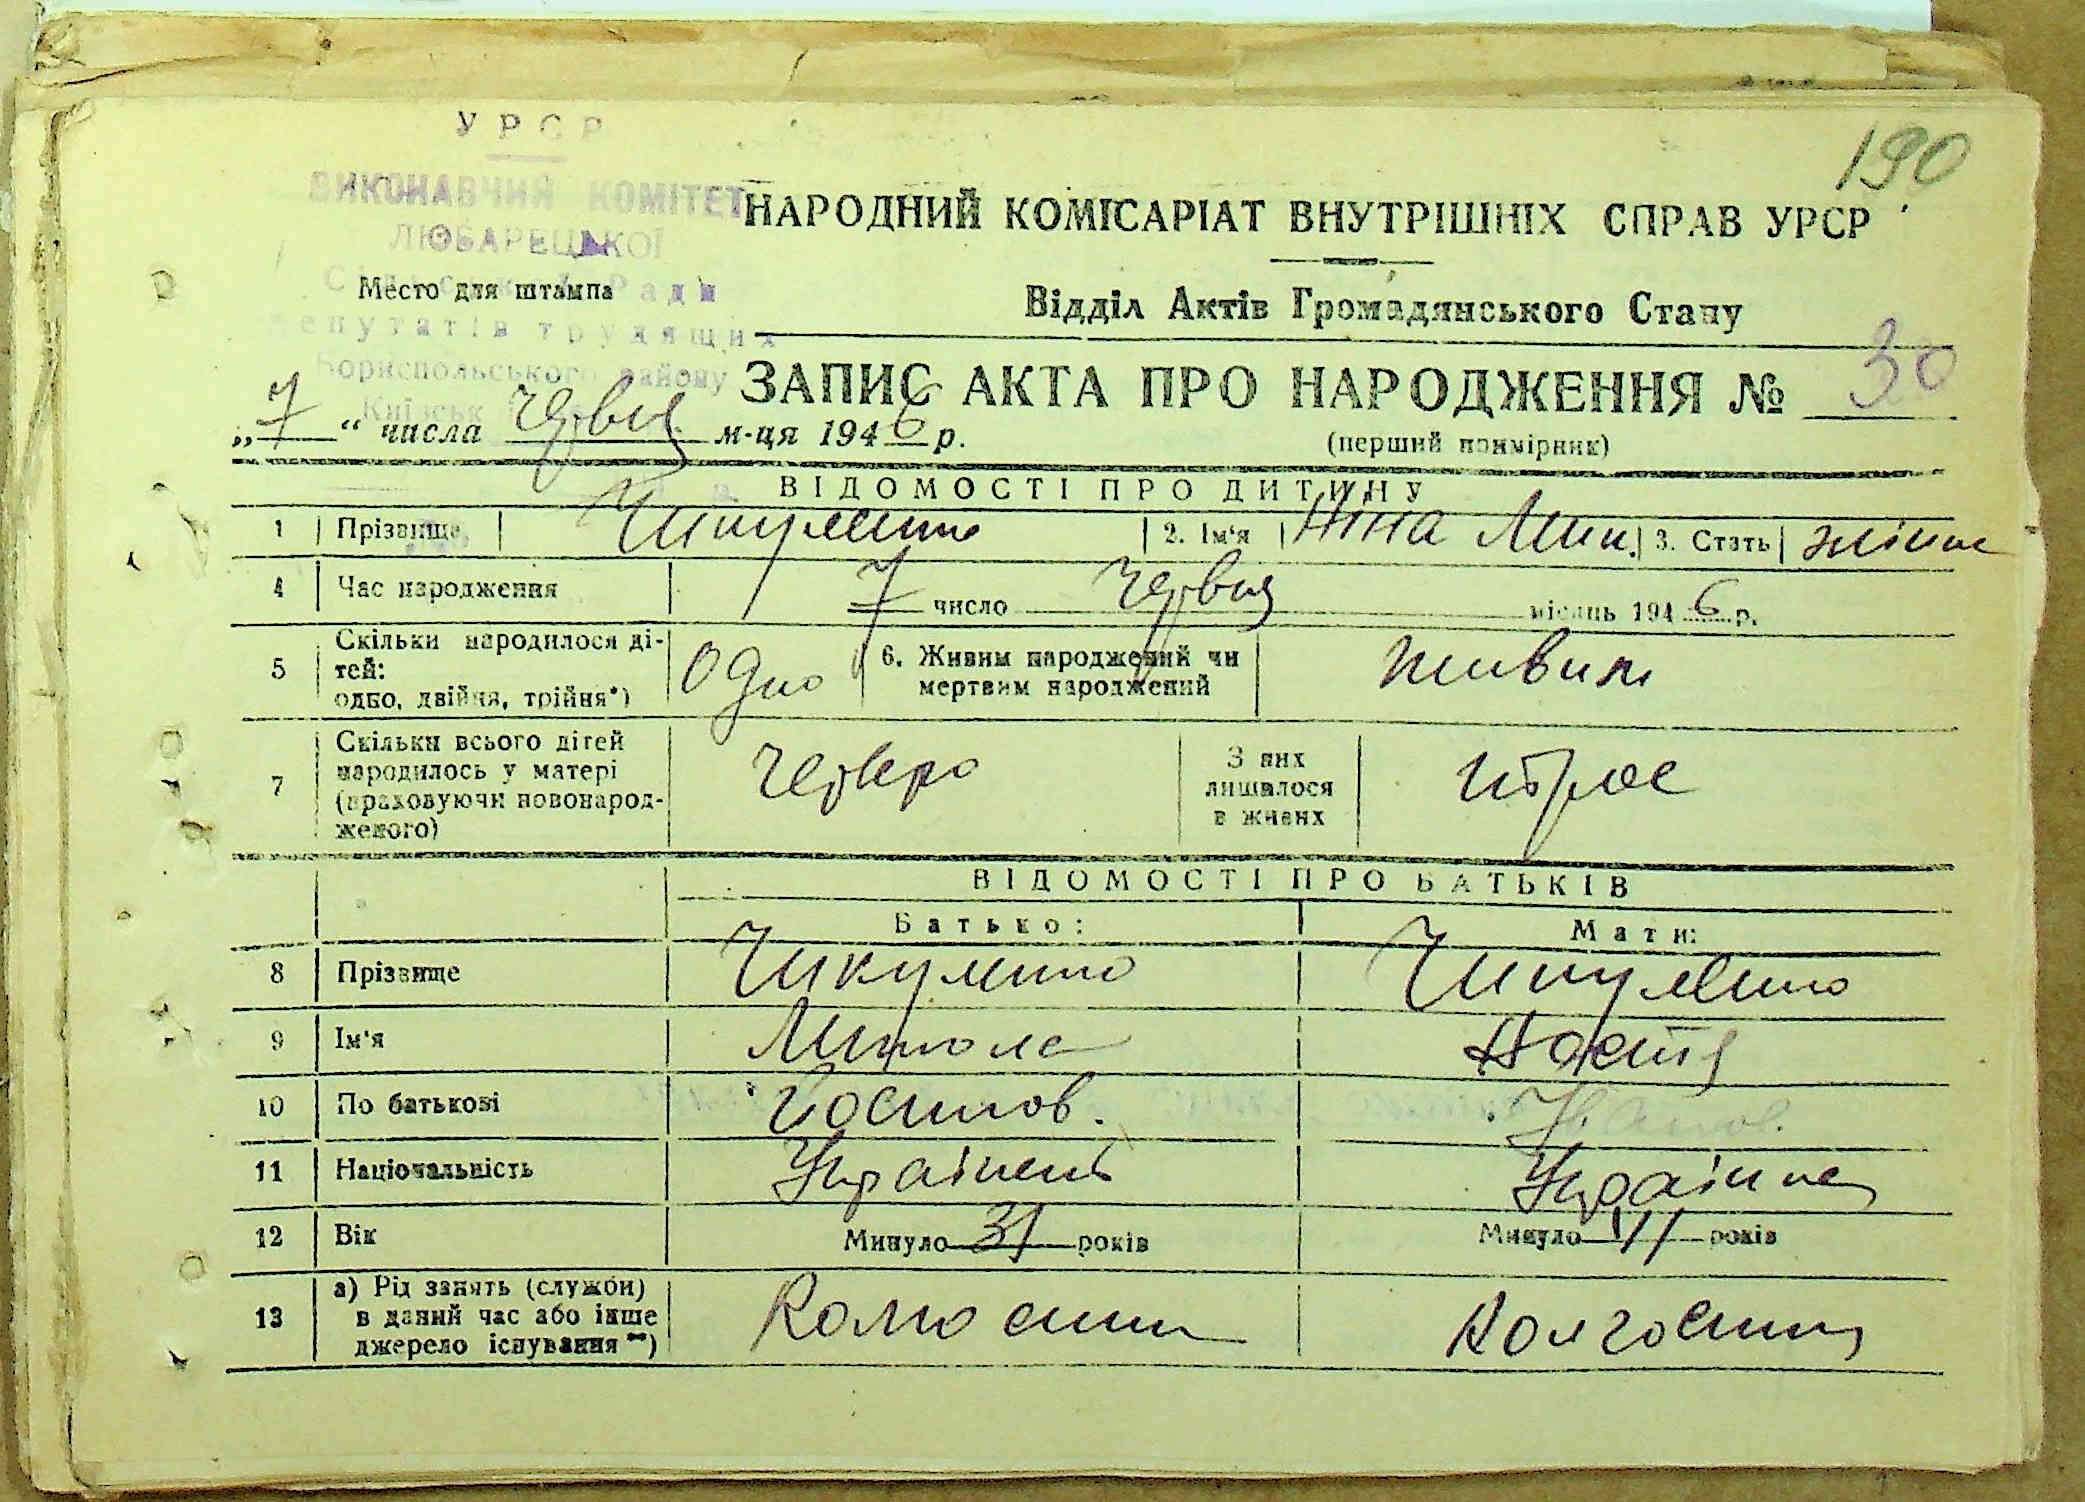 190
УРСР
ВИКОНАВЧИЙ КОМІТЕТ
ЛЮБАРЕЦЬКОЇ
Сільської Ради
депутатів трудящих
Бориспольського району
Київськ
НАРОДНИЙ КОМІСАРІАТ ВНУТРІШНІХ СПРАВ УРСР
Место для штампа
Відділ Актів Громадянського Стану
ЗАПИС АКТА ПРО НАРОДЖЕННЯ № 30
„7“ числа червня м-ця 1946 р.
(перший примірник)
ВІДОМОСТІ ПРО ДИТИНУ
1 Прізвище 2. Ім'я Ніна Мик. 3. Стать
4 Час народження 7 число червня місяць 1946 р.
5 Скільки народилося ді-
тей:
одно, двійня, трійня*) Одно
6. Живим народжений чи
мертвим народжений живим
7 Скільки всього дітей
народилось у матері
(враховуючи новонарод-
женого) четверо
З них
лишилося
в живих
ВІДОМОСТІ ПРО БАТЬКІВ
Батько: Мати:
8 Прізвище
9 Ім'я Микола Настя
10 По батькові
11 Національність Українець Українка
12 Вік Минуло 31 років Минуло років
13 а) Рід занять (служби)
в даний час або інше
джерело існування**)